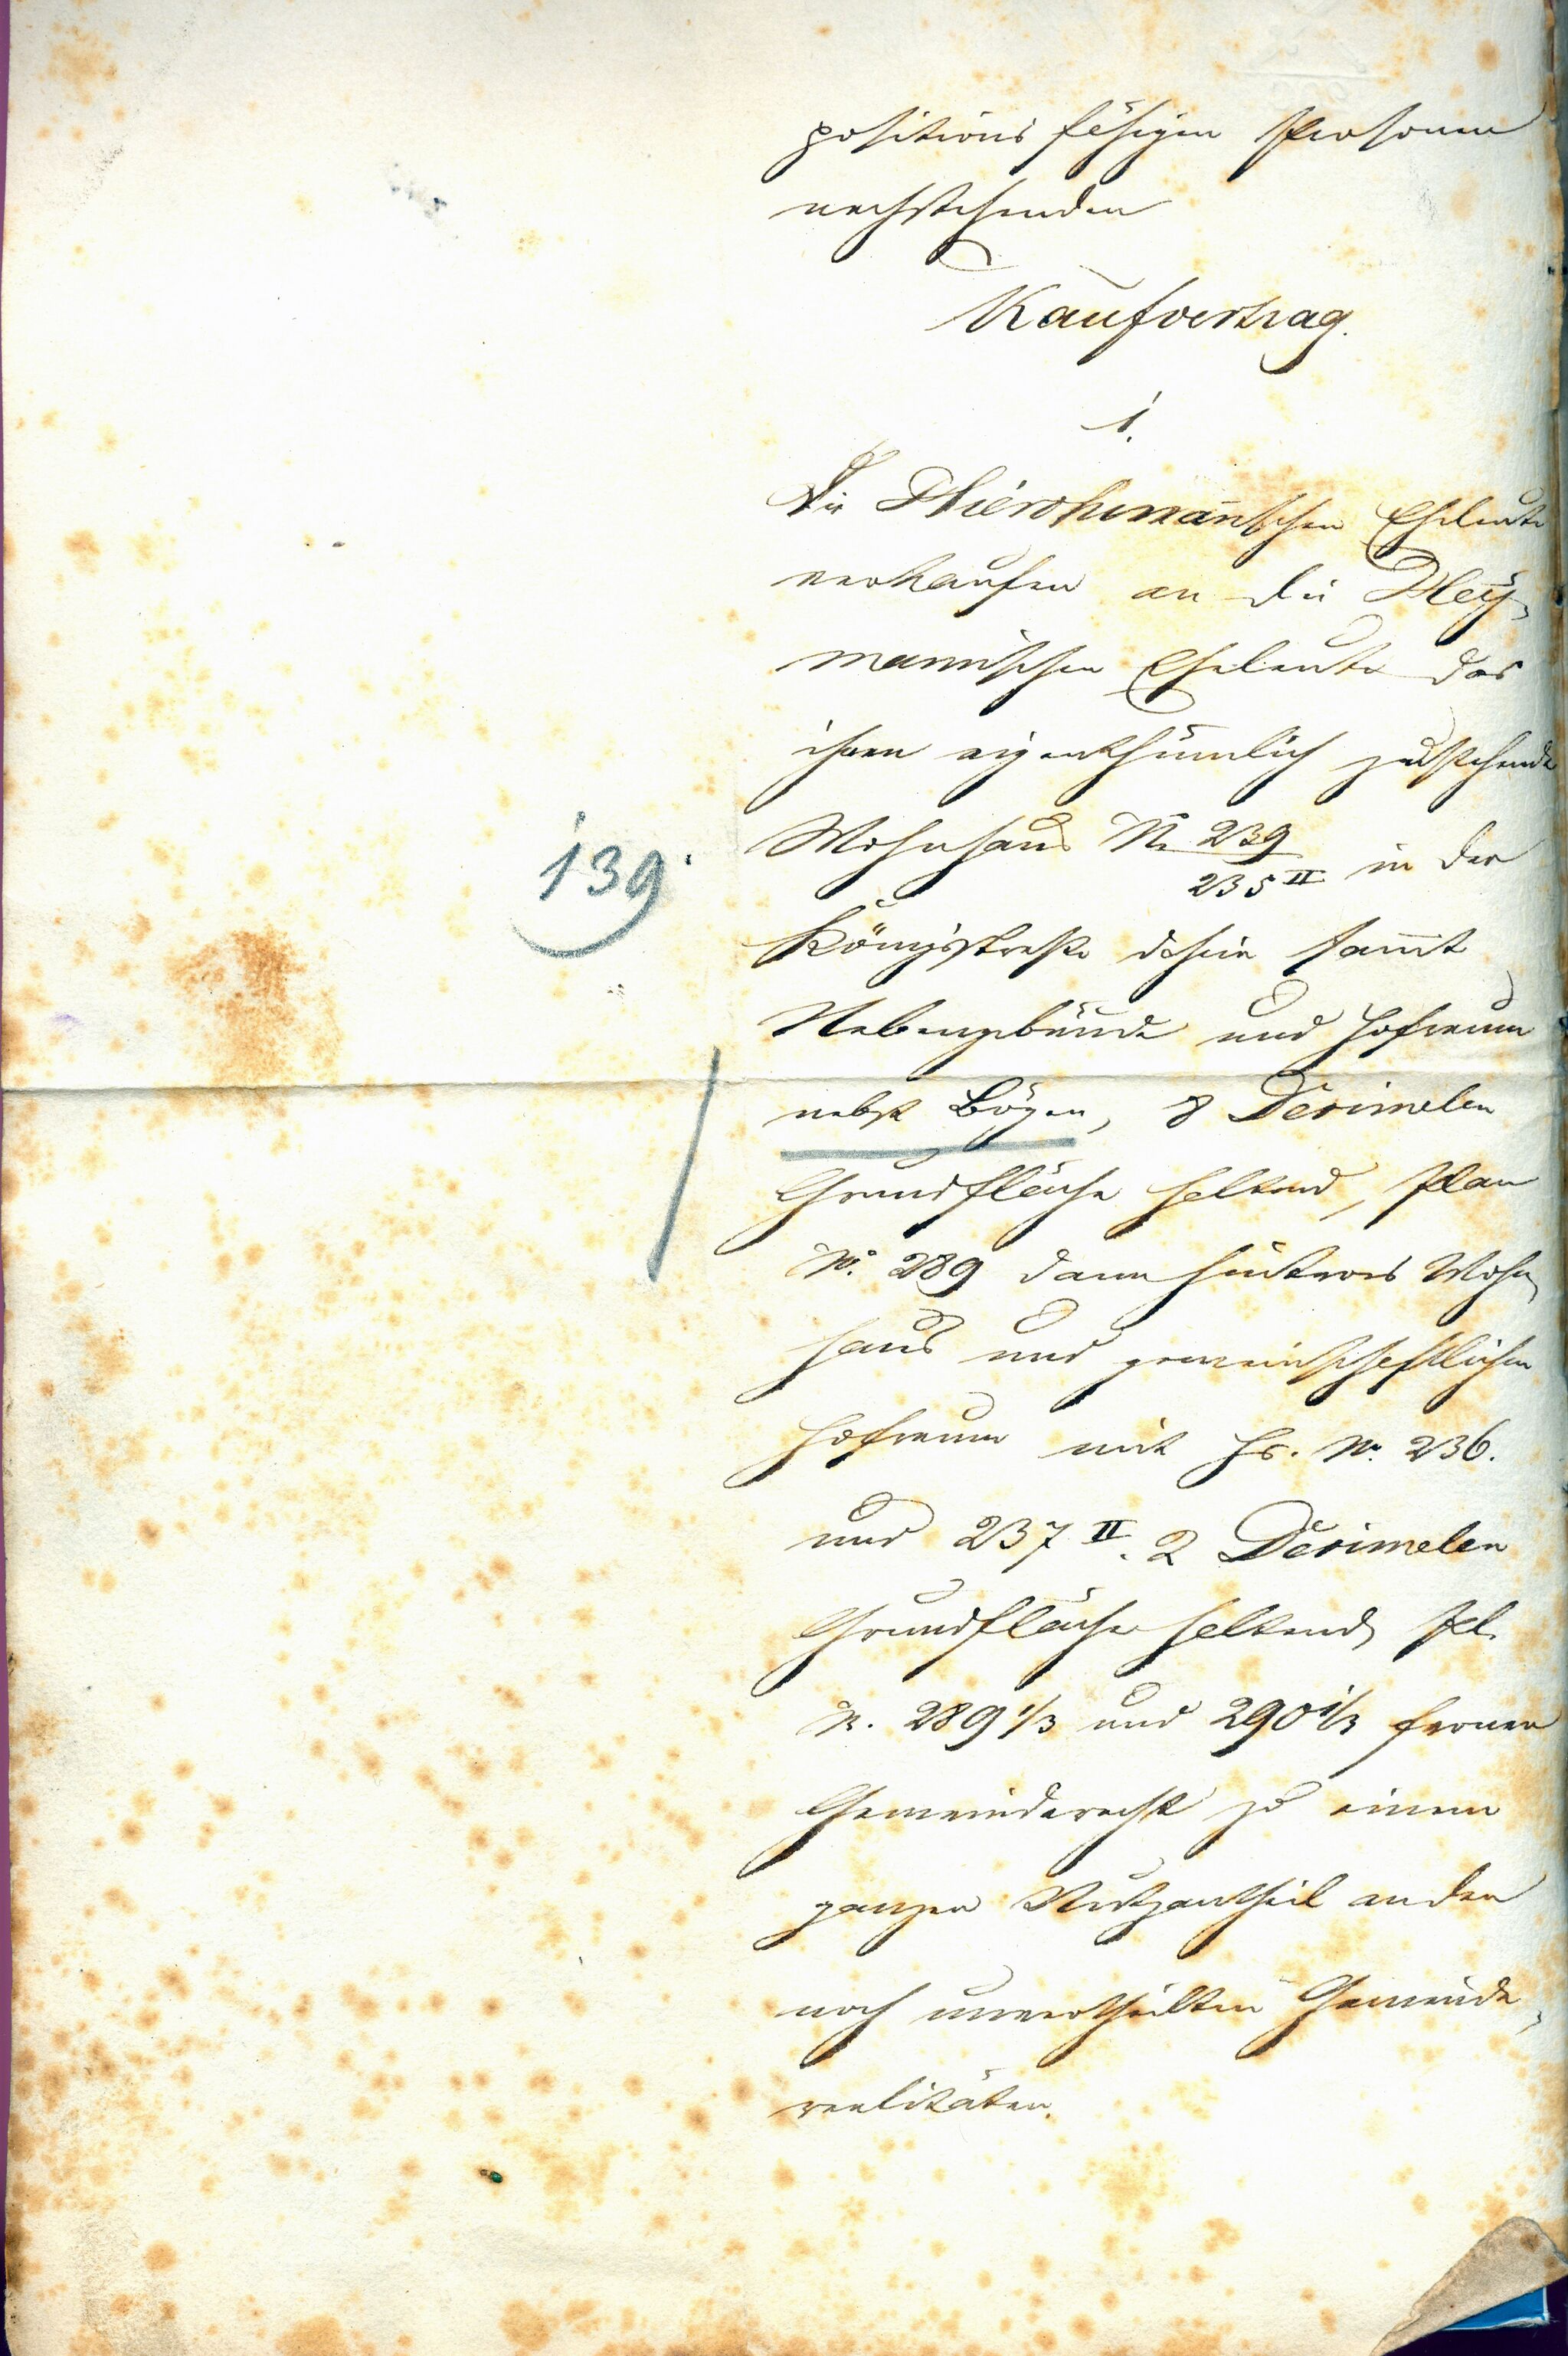 positionsfähigen Personen
nachstehenden
Kaufvertrag.
1.
Die
Eheleute
verkaufen an die Hey¬
mannischen Eheleute das
ihnen eigenthümlich zustehende
Wohnhaus No 239/235 II in der
Königsstraße dahier sammt
Nebengebäude und Hofraum
nebst Bögen, 8 Dezimalen
Grundfläche haltend, Plan
No. 289 dann hinteres Wohn¬
139.
haus und gemeinschaftlichen
Hofraum mit Hs. No. 236.
und 237 II. 2 Dezimalen
Grundfläche haltend, Pl.
N. 289 1/3 und 290 1/3 ferner
Gemeinderecht zu einem
ganzen Nutzantheil an den
noch unvertheilten Gemeinde¬
realitäten.